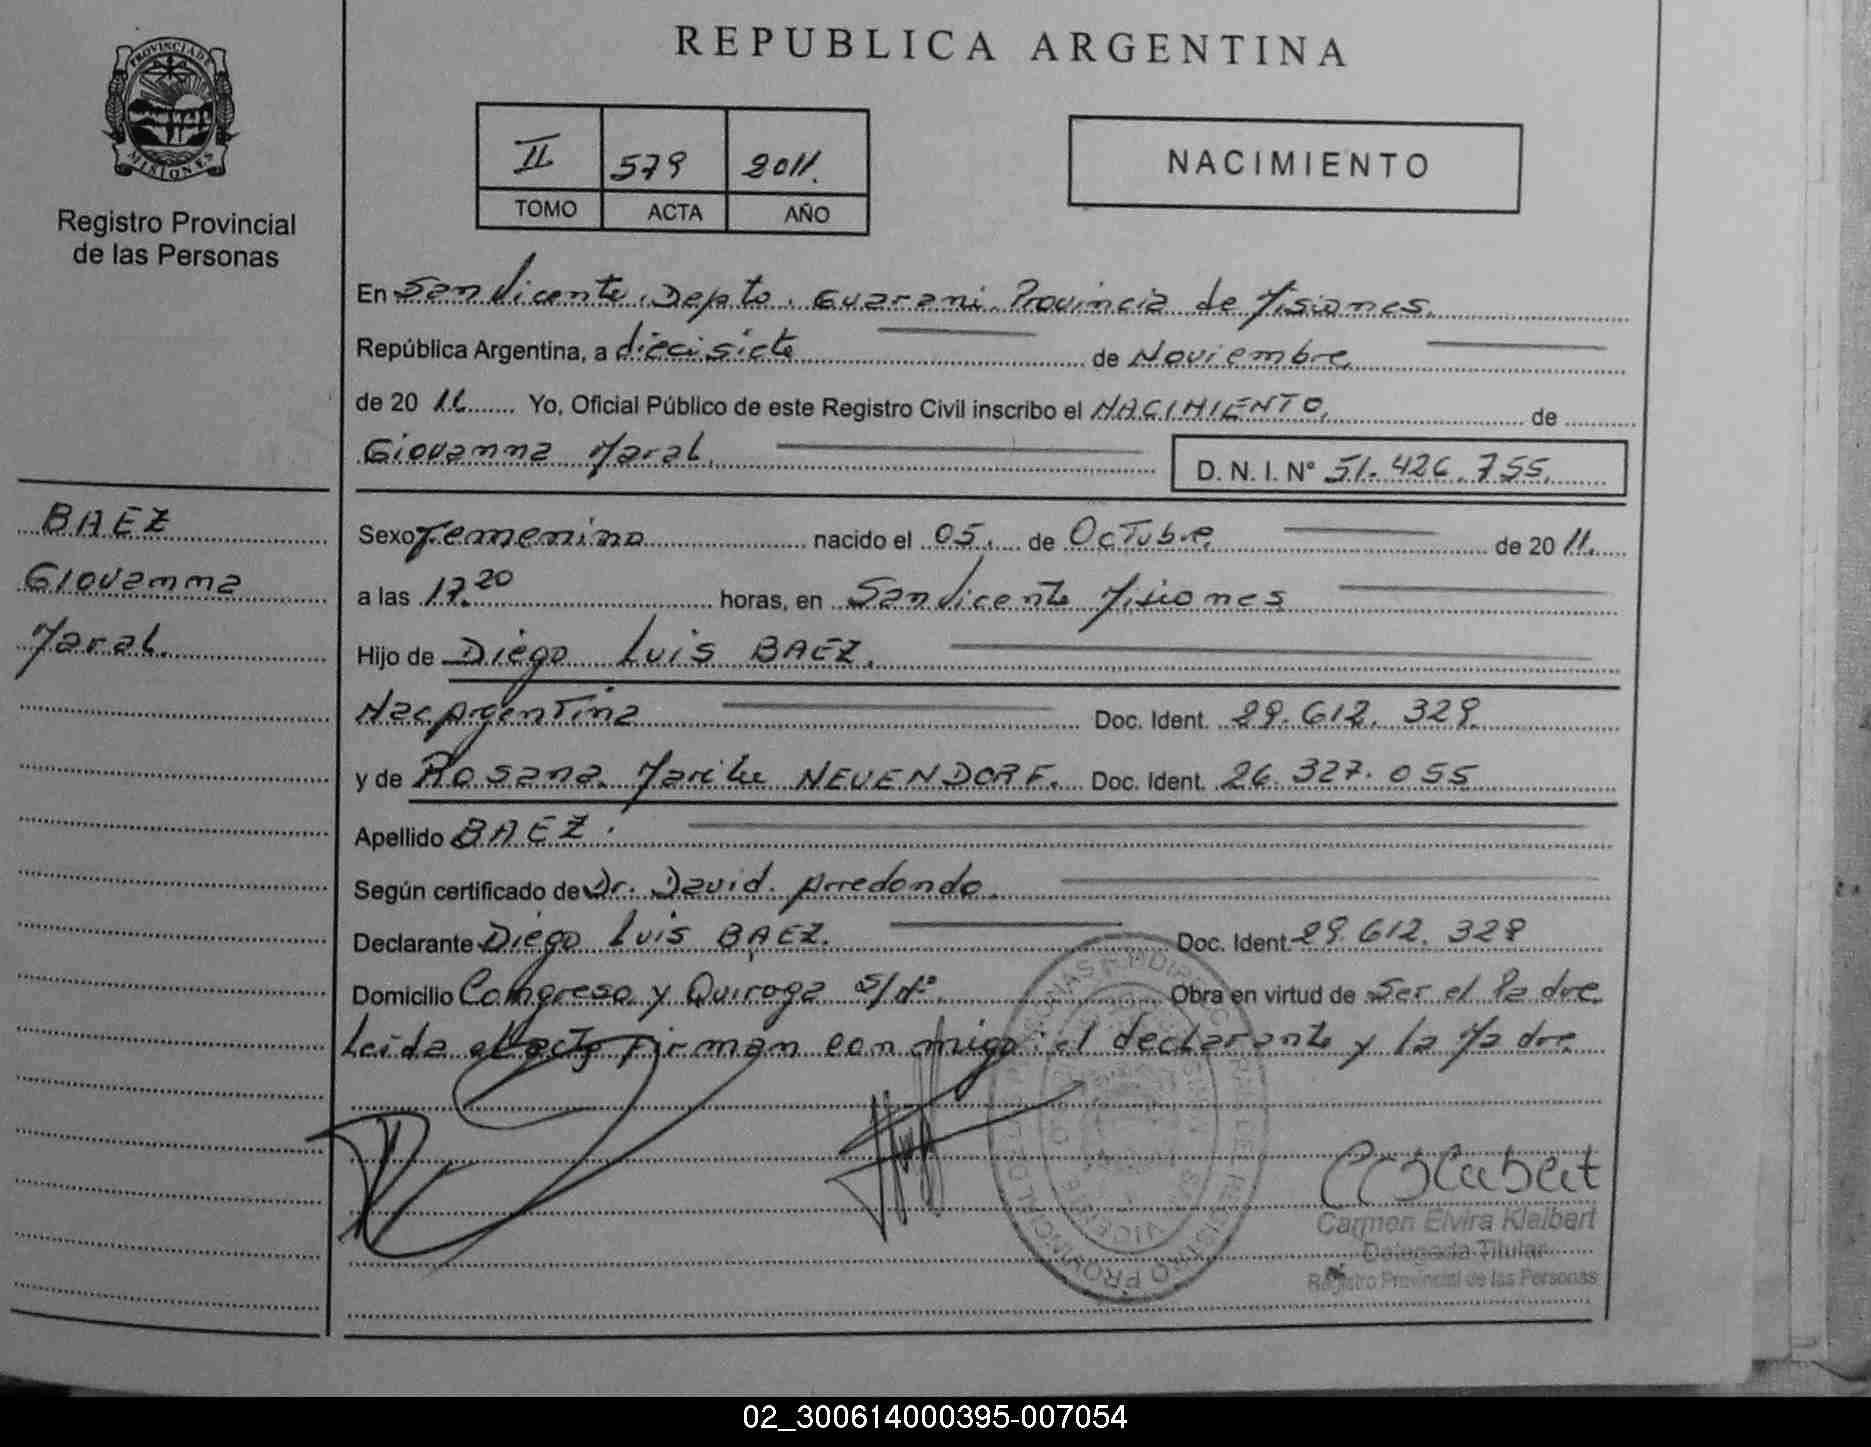 REPUBLICA ARGENTINA
PROVINCIA DE
MISIONES
Registro Provincial
de las Personas
II 579 2011.
TOMO ACTA AÑO
NACIMIENTO
En San Vicente. Depto. Guarani. Provincia de Misiones.
República Argentina, a diecisiete de Noviembre.
de 20 11. Yo, Oficial Público de este Registro Civil inscribo el NACIMIENTO, de
Giovanna Maral. D. N. I. N° 51.426.755.
BAEZ
Giovanna
Maral.
Sexo Femenino nacido el 05. de Octubre de 20 11.
a las 17.20 horas, en San Vicente Misiones
Hijo de Diego Luis BAEZ.
Nac Argentina Doc. Ident. 29.612.329.
y de Rosana NEUENDORF. Doc. Ident. 26.327.055
Apellido BAEZ.
Según certificado de Dr. David Arredondo.
Declarante Diego Luis BAEZ. Doc. Ident 29.612.329
Domicilio Congreso y Quiroga s/Nº. Obra en virtud de Ser el Padre
Leida el acta firman conmigo: el declarante y la Madre
Carmen Elvira Klaibert
Delegada Titular
Registro Provincial de las Personas
02_300614000395-007054